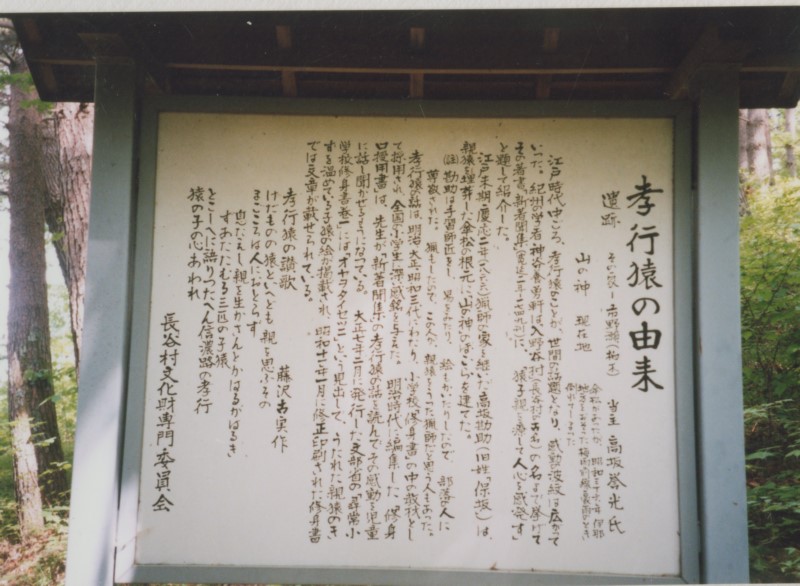 孝行猿の由来
遺跡 その家=市野瀬(柏木) 当主 高坂啓光氏
山の神 現在地
いった。紀州の学者神谷養勇軒は入野谷村(長谷村の古名)の名まで挙げて
その著書「新著聞集」
と題して紹介した。
江戸時代中ごろ、孝行猿のことが、世間の話題となり、感動の波紋は広がって
江戸末期、慶応二年
猟師の家を継いだ高坂勘助(旧姓「保坂」)は、
親猿を埋葬した傘松の根元に「山の神のほこら」を建てた。
(註)勘助は手習師匠をし、
絵もかいたりしたので、部落人に
尊敬された。猟もしたので、この人が、親猿をうった猟師だと思う人もあった。
孝行猿の話は、明治 大正 昭和三代にわたり、小学校修身書の中の教材とし
て採用され、全国小学生に深い感銘を与えた。明治時代に編集した「修身
口授用書」は、先生が「新著聞集の孝行猿の話」を読んでその感動を児童
に話し聞かせるようになっている。大正七年二月に発行した文部省の「尋常小
学校修身書巻一」には「オヤヲタイセツニ」という見出しで、うたれた親猿のき
ずを温めている子猿の絵が掲載され、昭和十一年一月に修正印刷された修身書
では文章が載せられている。
孝行猿の讃歌 藤沢古実作
けだものの猿といへども 親を思ふその
まごころは人におとらず
息たえし親を生かさんとかはるがはるき
ずあたたむる三匹の子猿
とこしへに語りつたへん信濃路の孝行
猿の子の心あわれ
長谷村文化財専門委員会